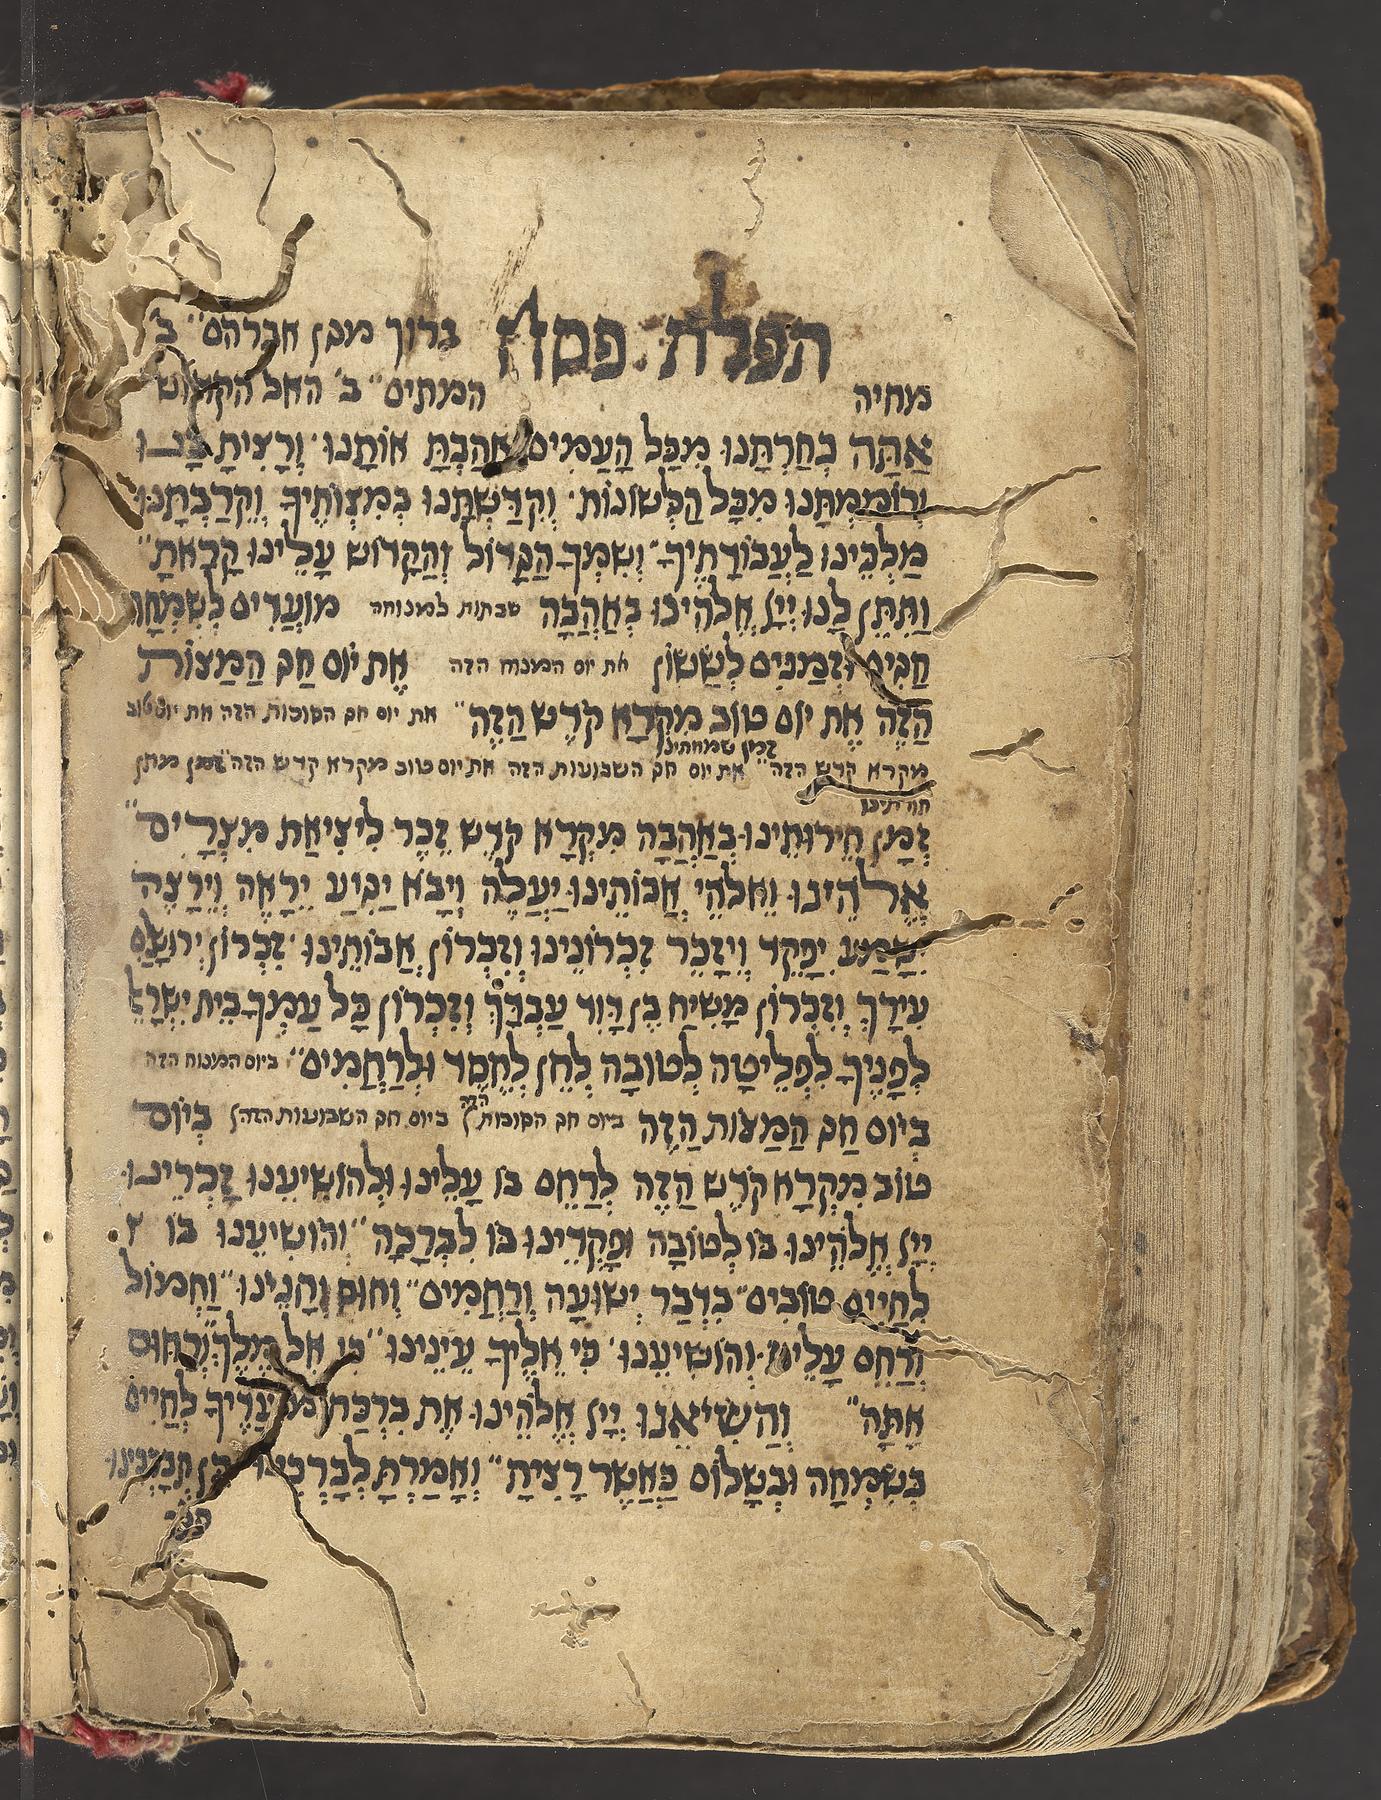 תפלת פסח ברוך מגן אברהם״ ב׳
מחיה המתים״ ב׳ האל הקדוש
אַתָּה בְחַרְתָּנוּ מִכָּל הָעַמִּים אָהַבְתָּ אוֹתָנוּ וְרָצִיתָ בָּנוּ
וְרוֹמַמְתָּנוּ מִכָּל הַלְּשׁוֹנוֹת וְקִדַּשְׁתָּנוּ בְּמִצְוֹתֶיךָ וְקֵרַבְתָּנוּ
מַלְכֵּינוּ לַעֲבוֹדָתֶיךָ״ וְשִׁמְךָ הַגָּדוֹל וְהַקָּדוֹשׁ עָלֵינוּ קָרָאתָ״
וַתִּתֵּן לָנוּ יְיָ אֱלֹהֵינוּ בְּאַהֲבָה שבתות למנוחה מוֹעֲדִים לְשִׂמְחָה
חַגִּים וּזְמַנִּים לְשָׂשׂוֹן את יום המנוח הזה אֶת יוֹם חַג הַמַּצּוֹת
הַזֶּה אֶת יוֹם טוֹב מִקְרָא קֹדֶשׁ הַזֶּה״ את יום חג הסוכות הזה את יום טוב
זמן שמחתינו
מקרא קדש הזה״ את יום חג השבועות הזה את יום טוב מקרא קדש הזה״ זמן מתן
תורתינו
זְמַן חֵירוּתֵינוּ בְּאַהֲבָה מִקְרָא קֹדֶשׁ זֵכֶר לִיצִיאַת מִצְרָיִם״
אֱלֹהֵינוּ וֵאלֹהֵי אֲבוֹתֵינוּ יַעֲלֶה וְיָבֹא יַגִּיעַ יֵרָאֶה וְיֵרָצֶה
יִשָּׁמַע יִפָּקֵד וְיִזָּכֵר זִכְרוֹנֵינוּ וְזִכְרוֹן אֲבוֹתֵינוּ זִכְרוֹן יְרוּשָׁלַם
עִירָךְ וְזִכְרוֹן מָשִׁיחַ בֶּן דָּוִד עַבְדָּךְ וְזִכְרוֹן כָּל עַמְּךָ בֵּית יִשְׂרָאֵל
לְפָנֶיךָ לִפְלֵיטָה לְטוֹבָה לְחֵן לְחֶסֶד וּלְרַחֲמִים״ ביום המנוח הזה
בְּיוֹם חַג הַמַּצּוֹת הַזֶּה ביום חג הסוכות הזה ביום חג השבועות הזה בְּיוֹם
טוֹב מִקְרָא קֹדֶשׁ הַזֶּה לְרַחֵם בּוֹ עָלֵינוּ וּלְהוֹשִׁיעֵנוּ זָכְרֵינוּ
יְיָ אֱלֹהֵינוּ בּוֹ לְטוֹבָה וּפָקְדֵינוּ בּוֹ לִבְרָכָה״ וְהוֹשִׁיעֵנוּ בוֹ
לְחַיִּים טוֹבִים״ בִּדְבַר יְשׁוּעָה וְרַחֲמִים״ וְחוּס וְחָנֵּינוּ״ וַחֲמוֹל
וְרַחֵם עָלֵינוּ וְהוֹשִׁיעֵנוּ כִּי אֵלֶיךָ עֵינֵינוּ״ כִּי אֵל מֶלֶךְ וְרַחוּם
אַתָּה״ וְהַשִּׂיאֵנוּ יְיָ אֱלֹהֵינוּ אֶת בִּרְכַּת מוֹעֲדֶיךָ לְחַיִּים
בְּשִׂמְחָה וּבְשָׁלוֹם כַּאֲשֶׁר רָצִיתָ״ וְאָמַרְתָּ לְבָרְכֵינוּ כֵּן תְּבָרְכֵינוּ